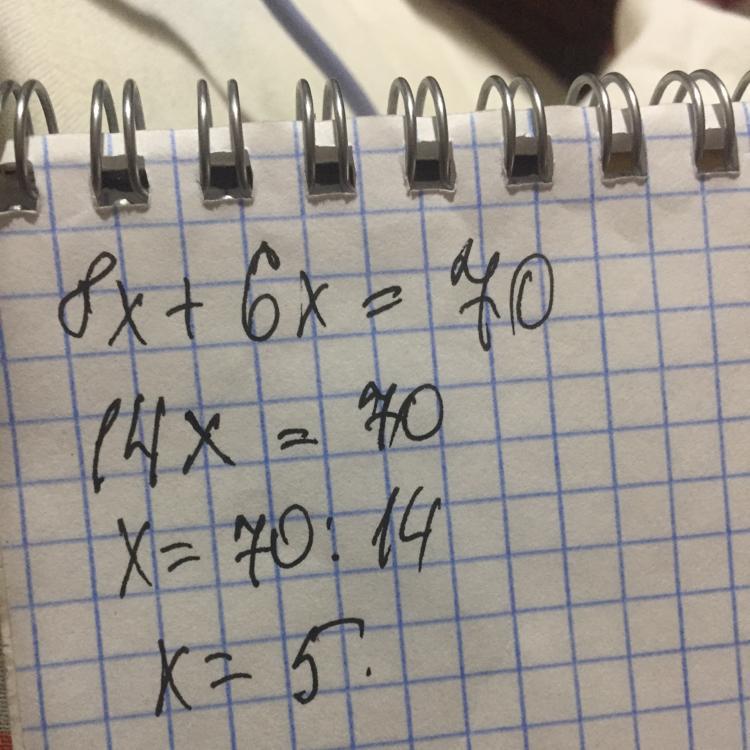 8x + 6x = 70
14x = 70
x = 70 : 14
x = 5.